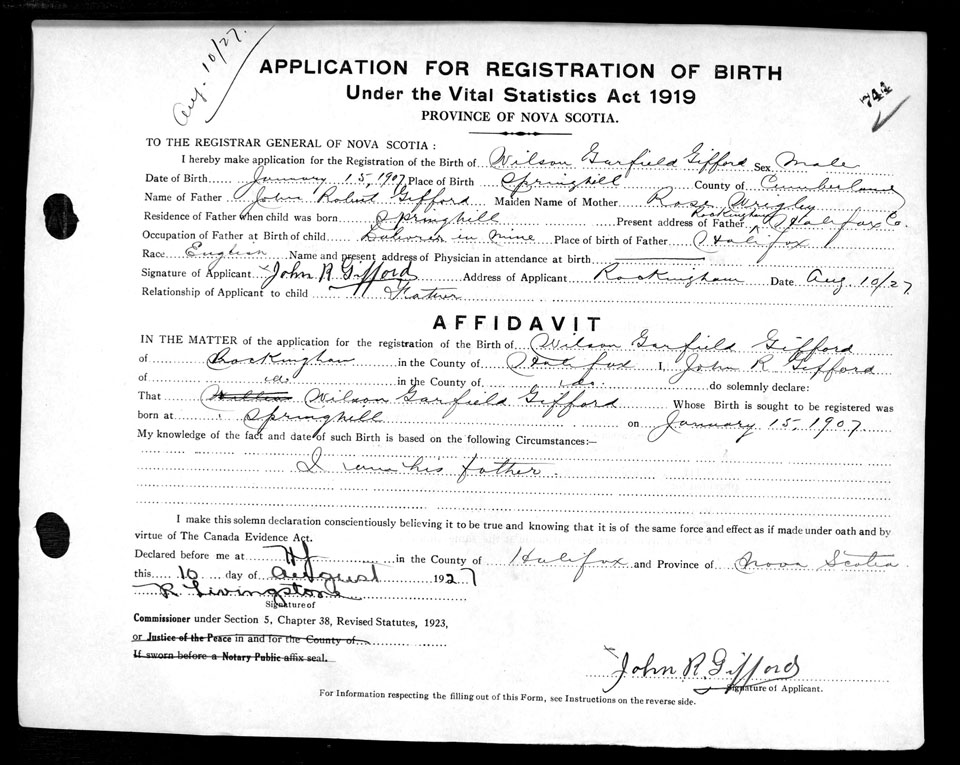 Aug. 10/27.
APPLICATION FOR REGISTRATION OF BIRTH
744
Under the Vital Statistics Act 1919
PROVINCE OF NOVA SCOTIA.
TO THE REGISTRAR GENERAL OF NOVA SCOTIA :
I hereby make application for the Registration of the Birth of Wilson Garfield Gifford Sex Male
Date of Birth January 15, 1907 Place of Birth Springhill County of Cumberland
Name of Father John Robert Gifford Maiden Name of Mother Rose Wrigley
Residence of Father when child was born Springhill Present address of Father Rockingham Halifax Co.
Occupation of Father at Birth of child Laborer in mine Place of birth of Father Halifax
Race English Name and present address of Physician in attendance at birth
Signature of Applicant John R Gifford Address of Applicant Rockingham Date Aug. 10/27
Relationship of Applicant to child Father
AFFIDAVIT
IN THE MATTER of the application for the registration of the Birth of Wilson Garfield Gifford
of Rockingham in the County of Halifax I, John R Gifford
of do. in the County of do. do solemnly declare:
That Wilson Garfield Gifford Whose Birth is sought to be registered was
born at Springhill on January 15, 1907
My knowledge of the fact and date of such Birth is based on the following Circumstances:—
I his father.
I make this solemn declaration conscientiously believing it to be true and knowing that it is of the same force and effect as if made under oath and by
virtue of The Canada Evidence Act.
Declared before me at Hfx in the County of Halifax and Province of Nova Scotia
this 10 day of August 1927
R Livingstone
Signature of
Commissioner under Section 5, Chapter 38, Revised Statutes, 1923,
or Justice of the Peace in and for the County of
If sworn before a Notary Public affix seal.
John R. Gifford
Signature of Applicant.
For Information respecting the filling out of this Form, see Instructions on the reverse side.